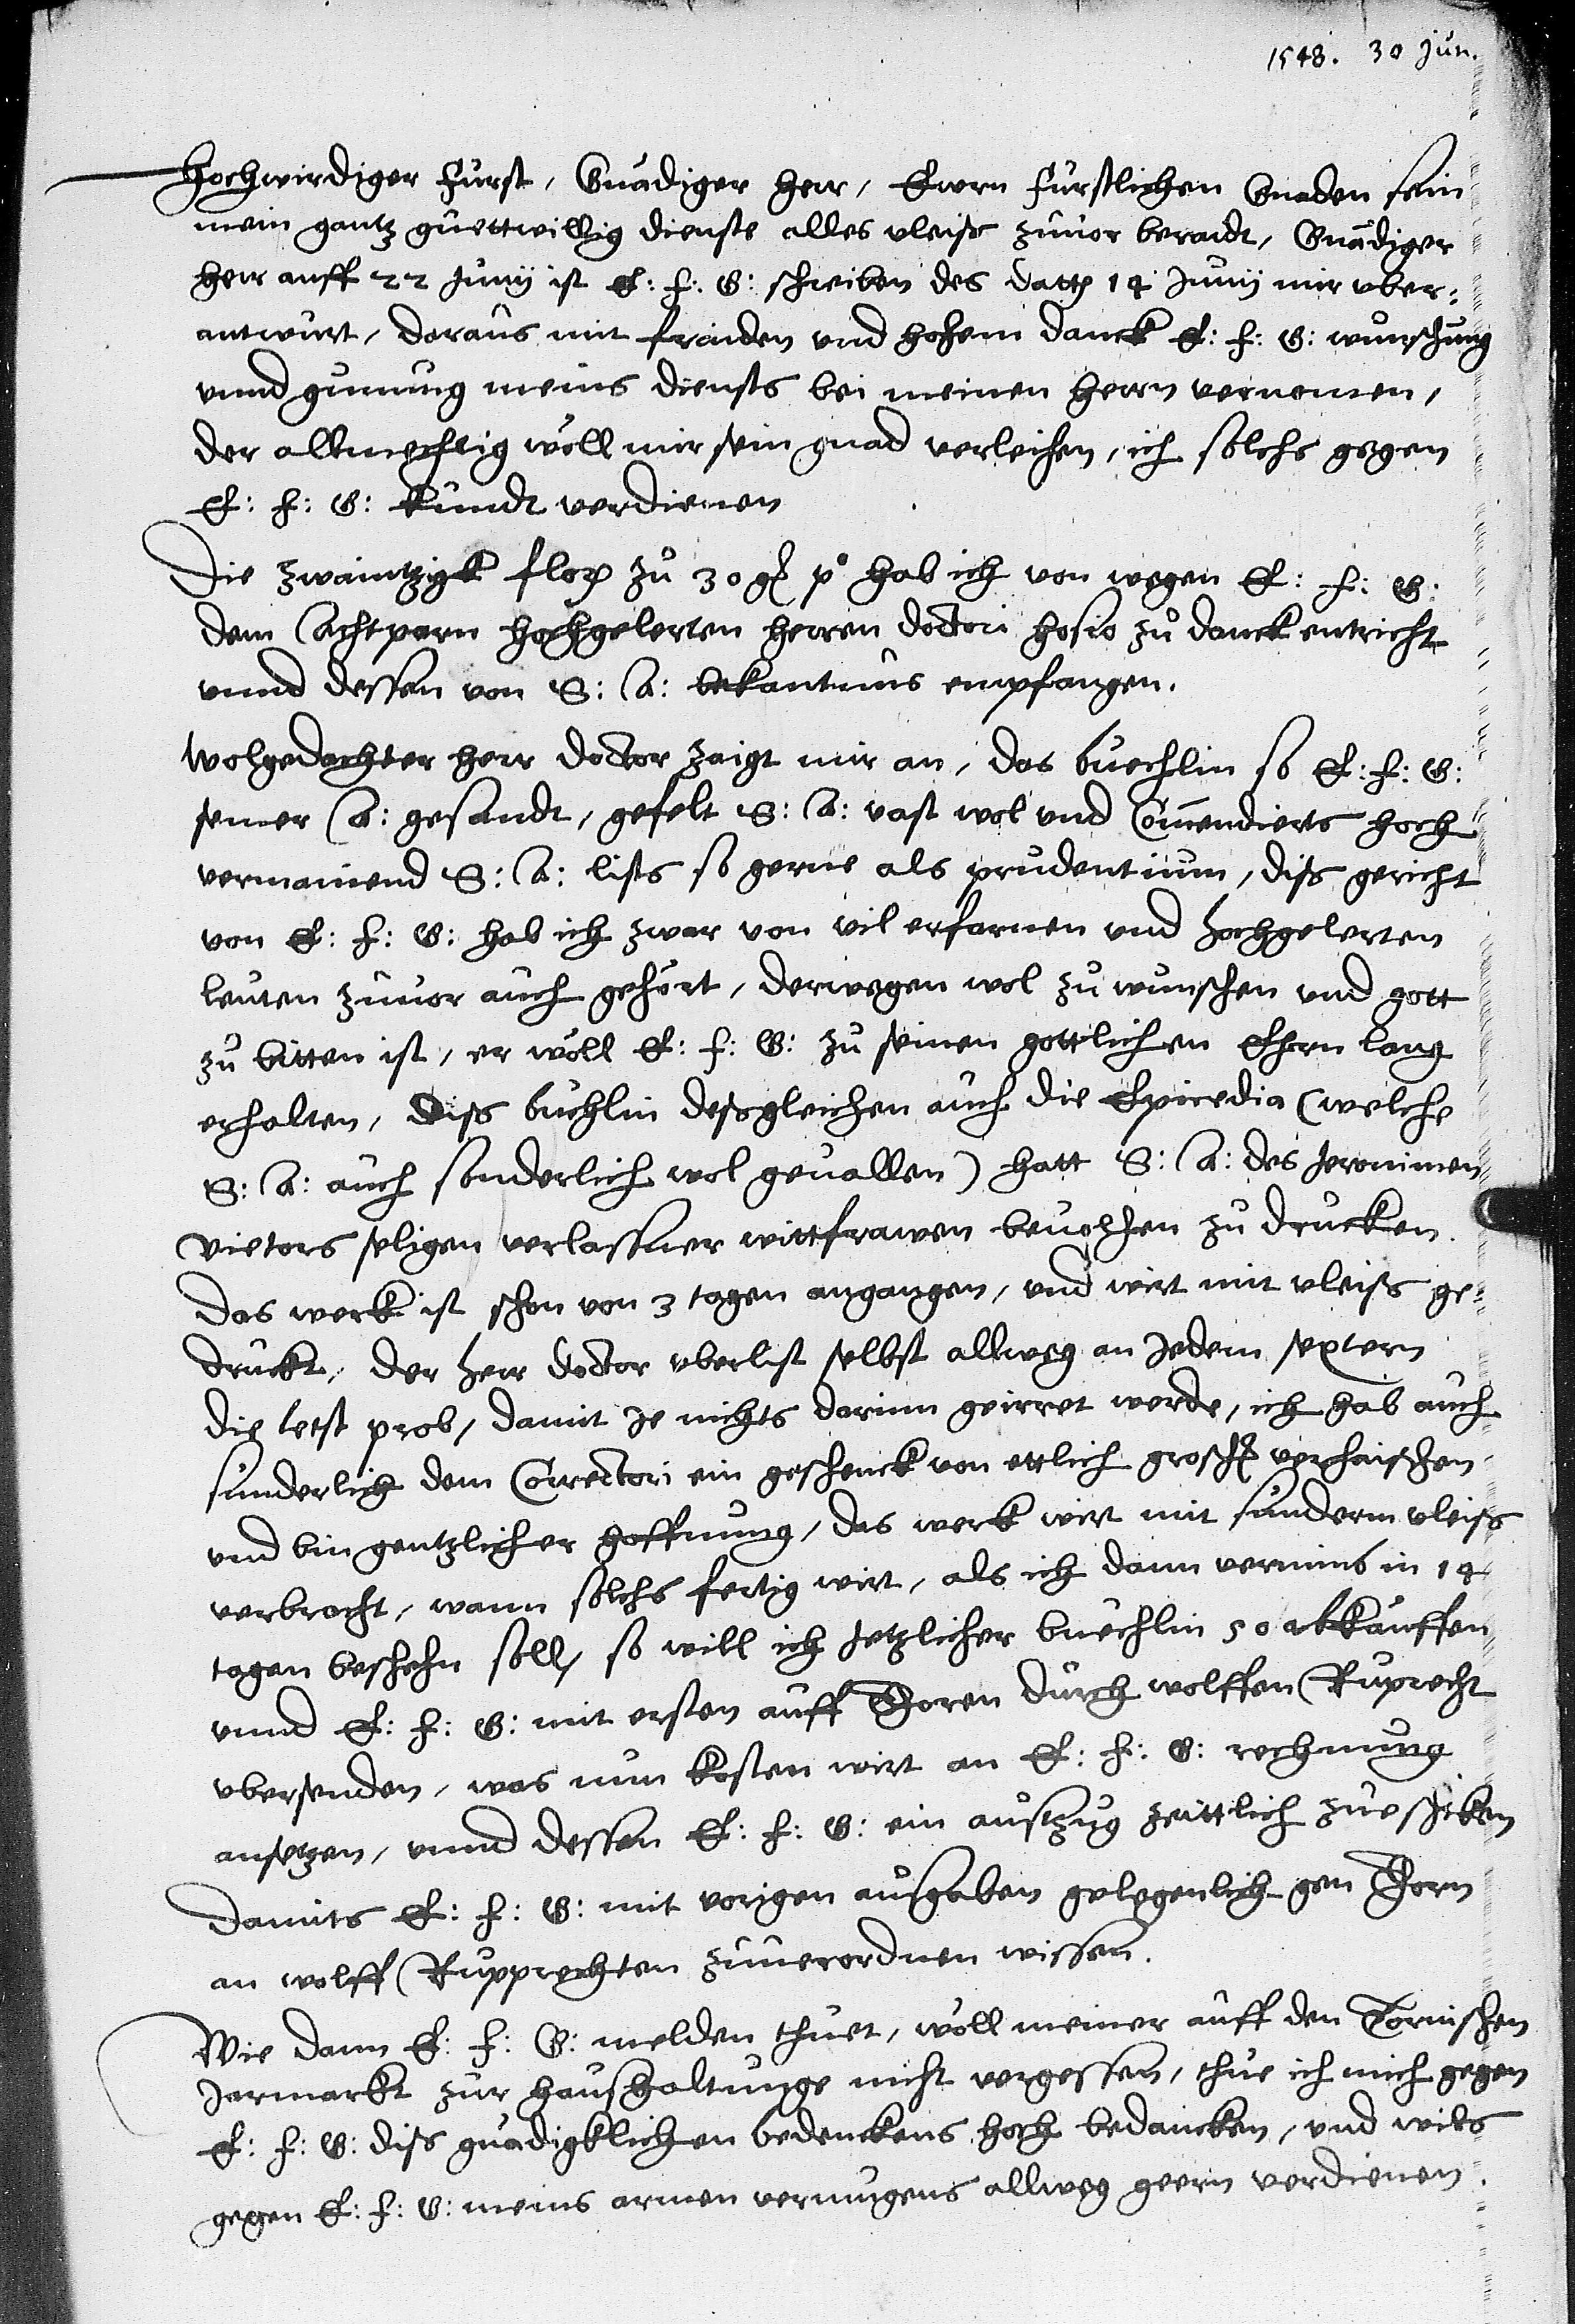 1548. 30 Jun.
Hochwirdiger Furst, Gnadiger Herr, Ewrn Furstlichen Gnaden sein
mein gantz guettwillig dienste alles vleiss zuuor beraidt, Gnadiger
Herr auff 22 Junij ist E: F: G: schreiben des 14 Junij mir vber:
antwurt, daraus mit fraiden vnd hohem danck E: F: G: wunschung
vnnd gunnung meins diensts bei meinen Herrn vernomen,
der allmechtig wöll mir sein gnad verleihen, ich solchs gegen
E: F: G: kundt verdienen
Die zwaintzigk zu 30 hab ich von wegen E: F: G:
dem Achtparn hochgelerten Herren Doctori Hosio zu danck entricht
vnnd dessen von S: A: bekantnus empfangen.
Wolgedachter Herr Doctor zaigt mir an, das buechlin so E: F: G:
seiner A: gesandt, gefelt S: A: vast wol vnd Comendierts hoch
vermainend S: A: liss so gerne als prudentium, diss gericht
von E: F: G: hab ich zwar von vil erfarnen vnd hochgelerten
leuten zuuor auch gehört, derwegen wol zu wunschen vnd gott
zu bitten ist, er wöll E: F: G: zu seinen gottlichen Ehern lang
erhalten, Diss büchlin dessgleichen auch die Epicedia (welche
S: A: auch sonderlich wol geuallen) hatt S: A: des Jeronimen
Vietors seligen verlassner wittfrawen beuolhen zu drucken.
Das werk ist schon von 3 tagen angangen, vnd wirt mit vleiss ge:
druckt, der Herr Doctor vberlist selbst allweg an Jedem sextern
die letst prob, damit Je nichts darinn geirret werde, ich hab auch
sunderlich dem Correctori ein geschenck von ettlich verhaischen
vnd bin gentzlicher hoffnung, das werk wirt mit sunderm vleiss
verbracht, wann solchs fertig wirt, als ich dann vernimb in 14
tagen beschehn soll, so will ich Jetzlicher buechlin 50 abkauffen
vnnd E: F: G: mit ersten auff Thoren durch wolffen Ruprecht
vbersenden, was nun kosten wirt an E: F: G: rechnung
ansetzen, vnnd dessen E: F: G: ein ausszug zeittlich zueschiken
Damits E: F: G: mit vorigen aussgaben gelegenlich gen Thorn
an wolff Rupprechten zuuerordnen wissen.
Wie dann E: F: G: melden thuet, wöll meiner auff den Tornischen
Jarmarkt zur haushaltunge nicht vergessen, thue ich mich gegen
E: F: G: diss gnadigklichen bedenckens hoch bedancken, vnd wils
gegen E: F: G: meins armen vermugens allweg geern verdienen.